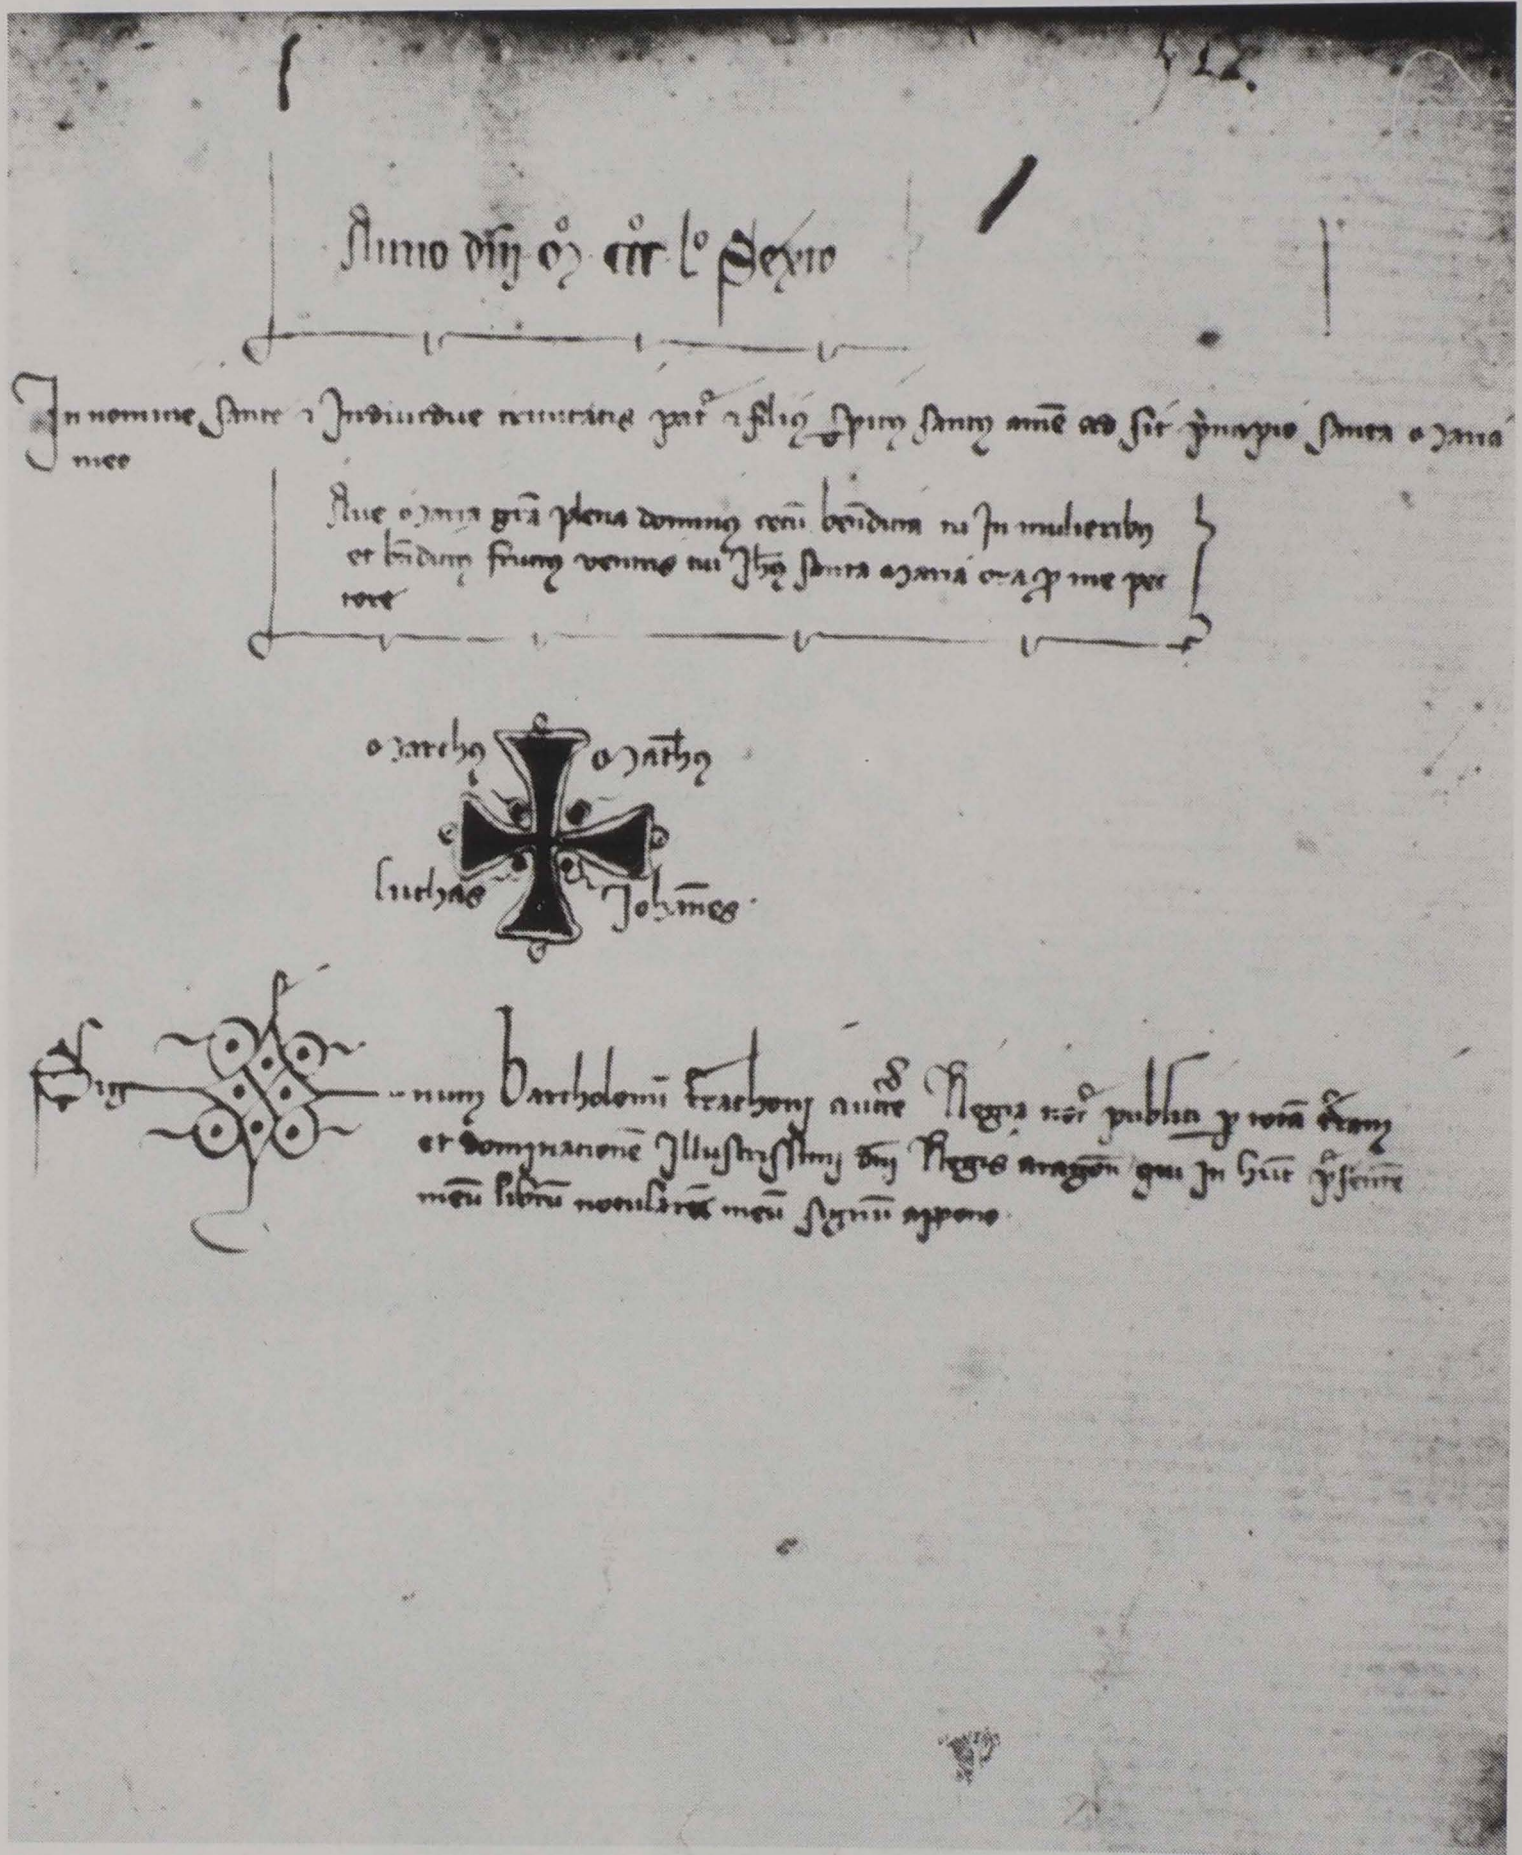 Anno dnj mº cccº lº Sexto
In nomine sante et Indiuidue trinitatis patris et filius Spiritus santus amen ad sit principio santa maria
meo
Aue maria gracia plena dominus tecum benedicta tu In mulieribus
et benedictus fructus ventris tui Ihesus santa maria ora pro me pec
tore
Marchus Matheus
luchas Johannes
Sig num Bartholomei auctoritate Regia notarii publici per totam terram
et dominationem Illustrissimi domini Regis aragonum qui In hunc presentem
meum librum notularem meum signum appono